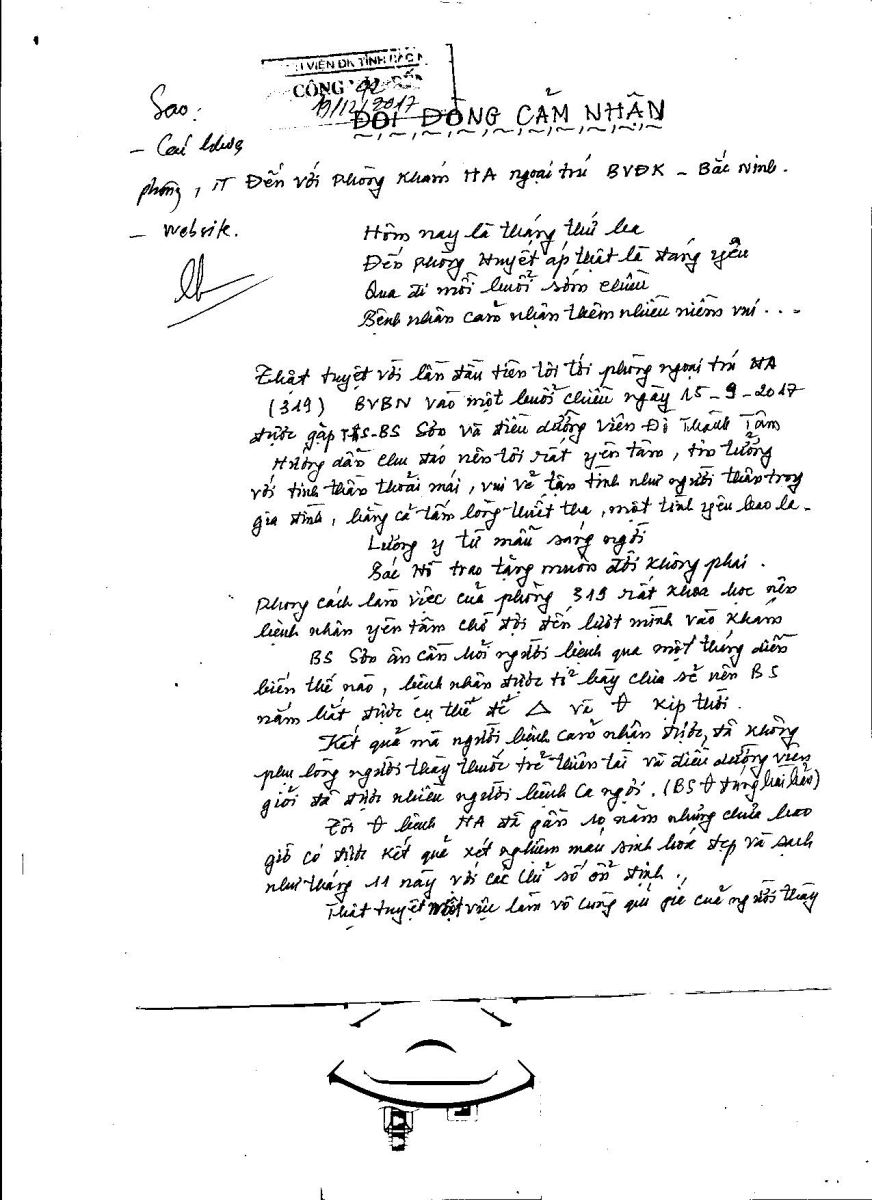 VIỆN ĐK TỈNH BẮC N
CÔNG VĂN ĐẾN
19/12/2017
Sao:
- Các khoa,
phòng, IT
- Website.
ĐÔI DÒNG CẢM NHẬN
Đến với Phòng Khám HA ngoại trú BVĐK - Bắc Ninh.
Hôm nay là tháng thứ ba
Đến phòng Huyết áp thật là đáng yêu
Qua đi mỗi buổi sớm chiều
Bệnh nhân cảm nhận thêm nhiều niềm vui...
Thật tuyệt vời lần đầu tiên tôi tới phòng ngoại trú HA
(319) BVBN vào một buổi chiều ngày 15-9-2017
được gặp ThS-BS Sơn và điều dưỡng viên Đ Thanh Tâm
Hướng dẫn chu đáo nên tôi rất yên tâm, tin tưởng
với tinh thần thoải mái, vui vẻ tận tình như người thân trong
gia đình, bằng cả tấm lòng thiết tha, một tình yêu bao la.
Lương y từ mẫu sáng ngời
Bác Hồ trao tặng muôn đời không phai.
Phong cách làm việc của phòng 319 rất khoa học nên
bệnh nhân yên tâm chờ đợi đến lượt mình vào khám
BS Sơn ân cần hỏi người bệnh qua một tháng diễn
biến thế nào, bệnh nhân được tỏ bày chia sẻ nên BS
nắm bắt được cụ thể để Δ và θ kịp thời.
Kết quả mà người bệnh cảm nhận được, đã không
phụ lòng người thầy thuốc trẻ thiên tài và điều dưỡng viên
giỏi đã được nhiều người bệnh ca ngợi. (BS θ đúng bài bản)
Tôi θ bệnh HA đã gần 10 năm nhưng chưa bao
giờ có được kết quả xét nghiệm máu sinh hoá đẹp và sạch
như tháng 11 này với các chỉ số ổn định.
Thật tuyệt một việc làm vô cùng quí giá của người thầy